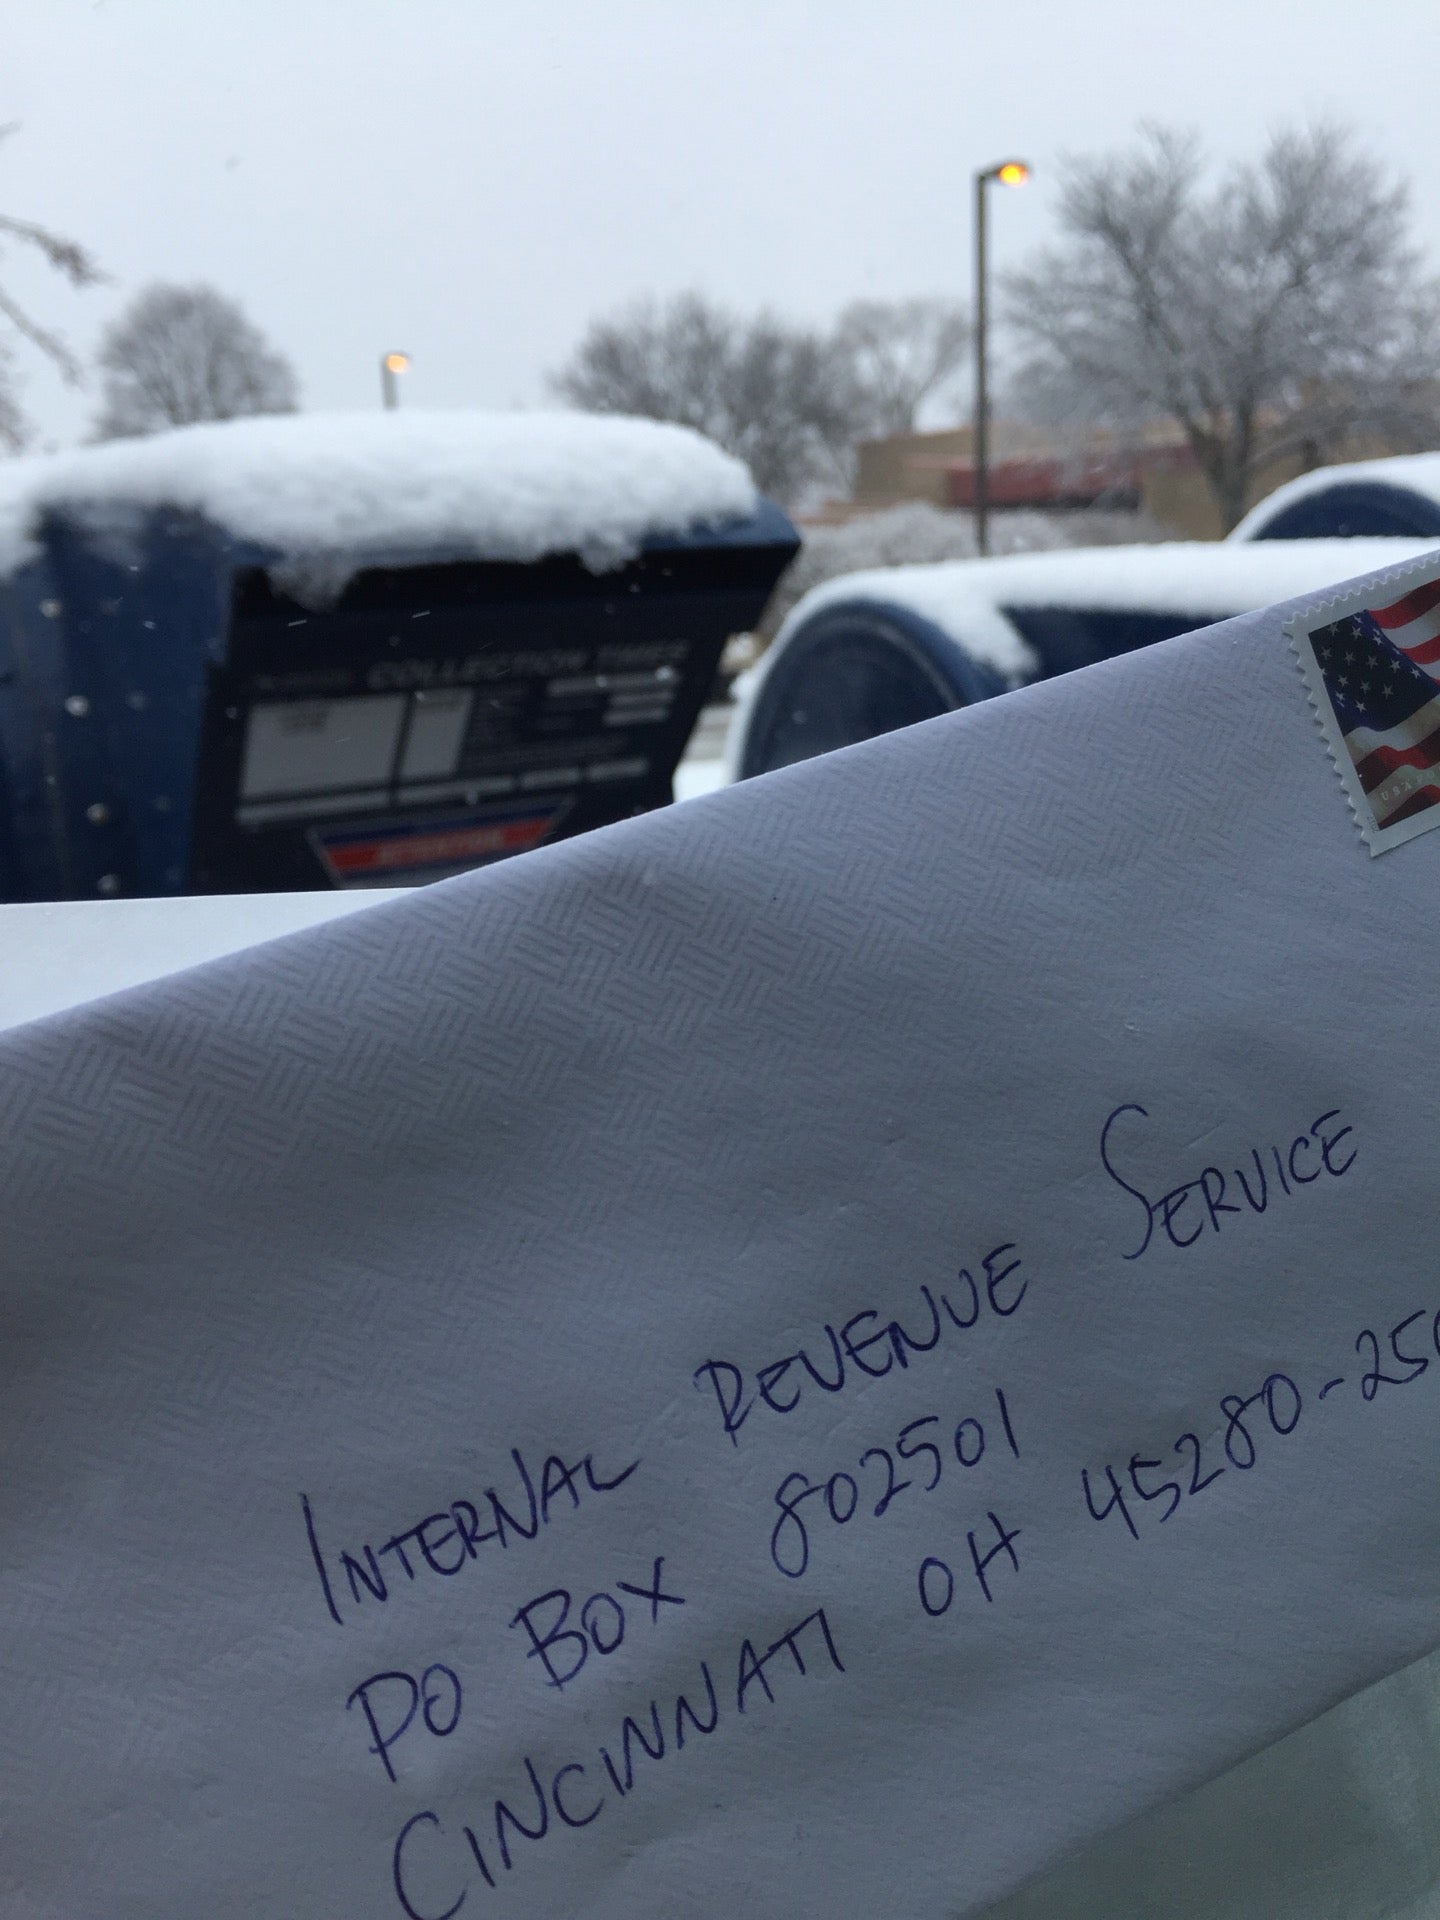 COLLECTION TIMES
USA
INTERNAL REVENUE SERVICE
PO BOX 802501
CINCINNATI OH 45280-25